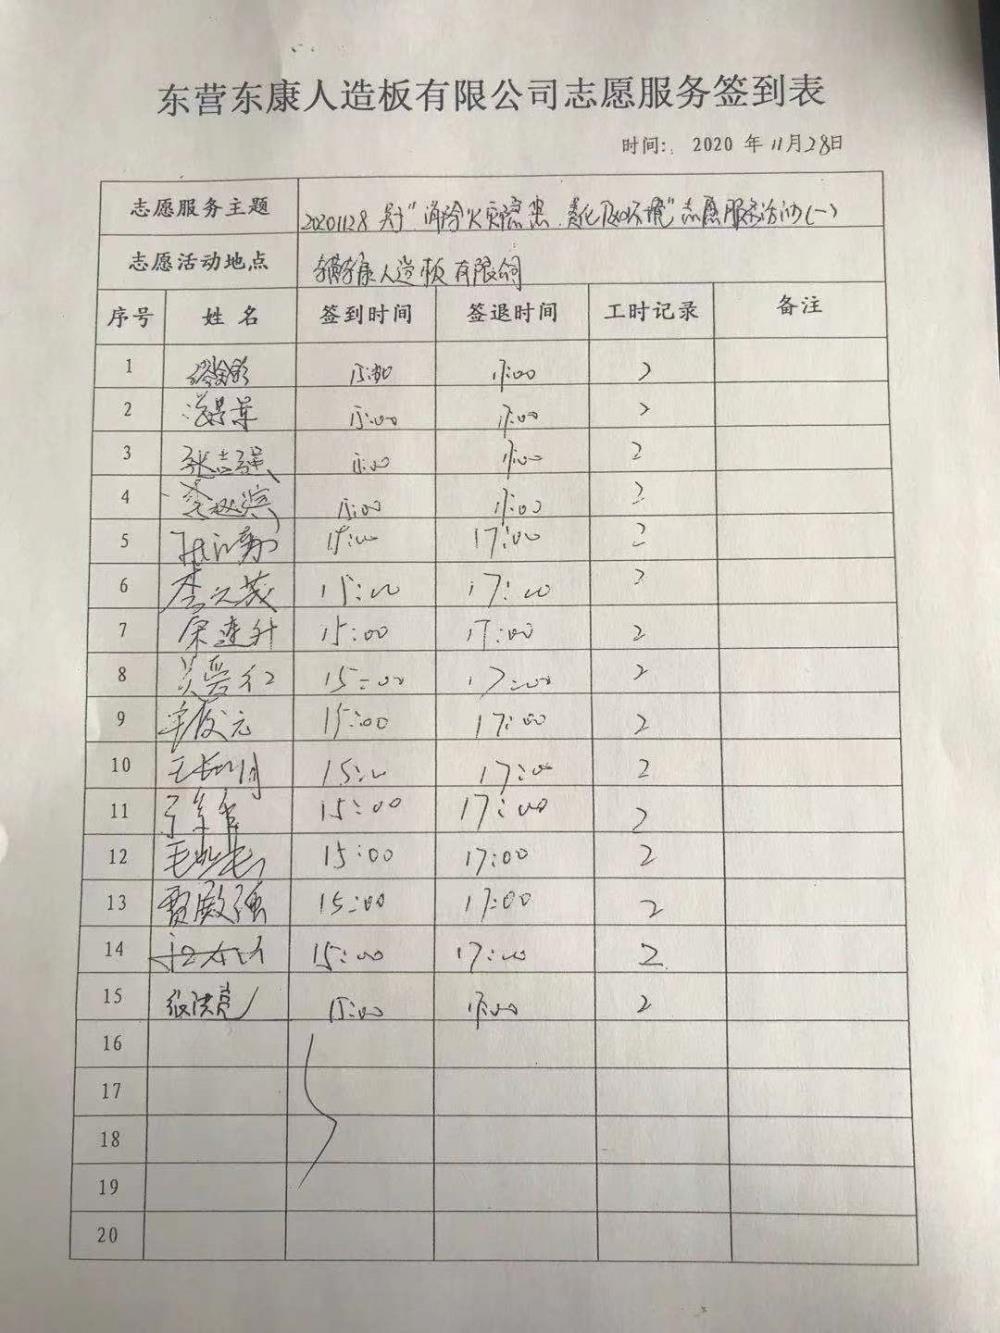 东营东康人造板有限公司志愿服务签到表
时间: 2020 年 11月28日
志愿服务主题 20201128 关于"消除火灾隐患 美化 环境"志愿服务活动(一)
志愿活动地点 东营东康人造板有限公司
序号 姓 名 签到时间 签退时间 工时记录 备注
1 15:00 17:00 2
2 15:00 17:00 2
3 张志强 15:00 17:00 2
4 李 滨 15:00 17:00 2
5 15:00 17:00 2
6 李 茂 15:00 17:00 2
7 宋连升 15:00 17:00 2
8 吴爱红 15:00 17:00 2
9 元 15:00 17:00 2
10 王 15:00 17:00 2
11 15:00 17:00 2
12 15:00 17:00 2
13 贾殿强 15:00 17:00 2
14 15:00 17:00 2
15 张洪亮 15:00 17:00 2
16
17
18
19
20